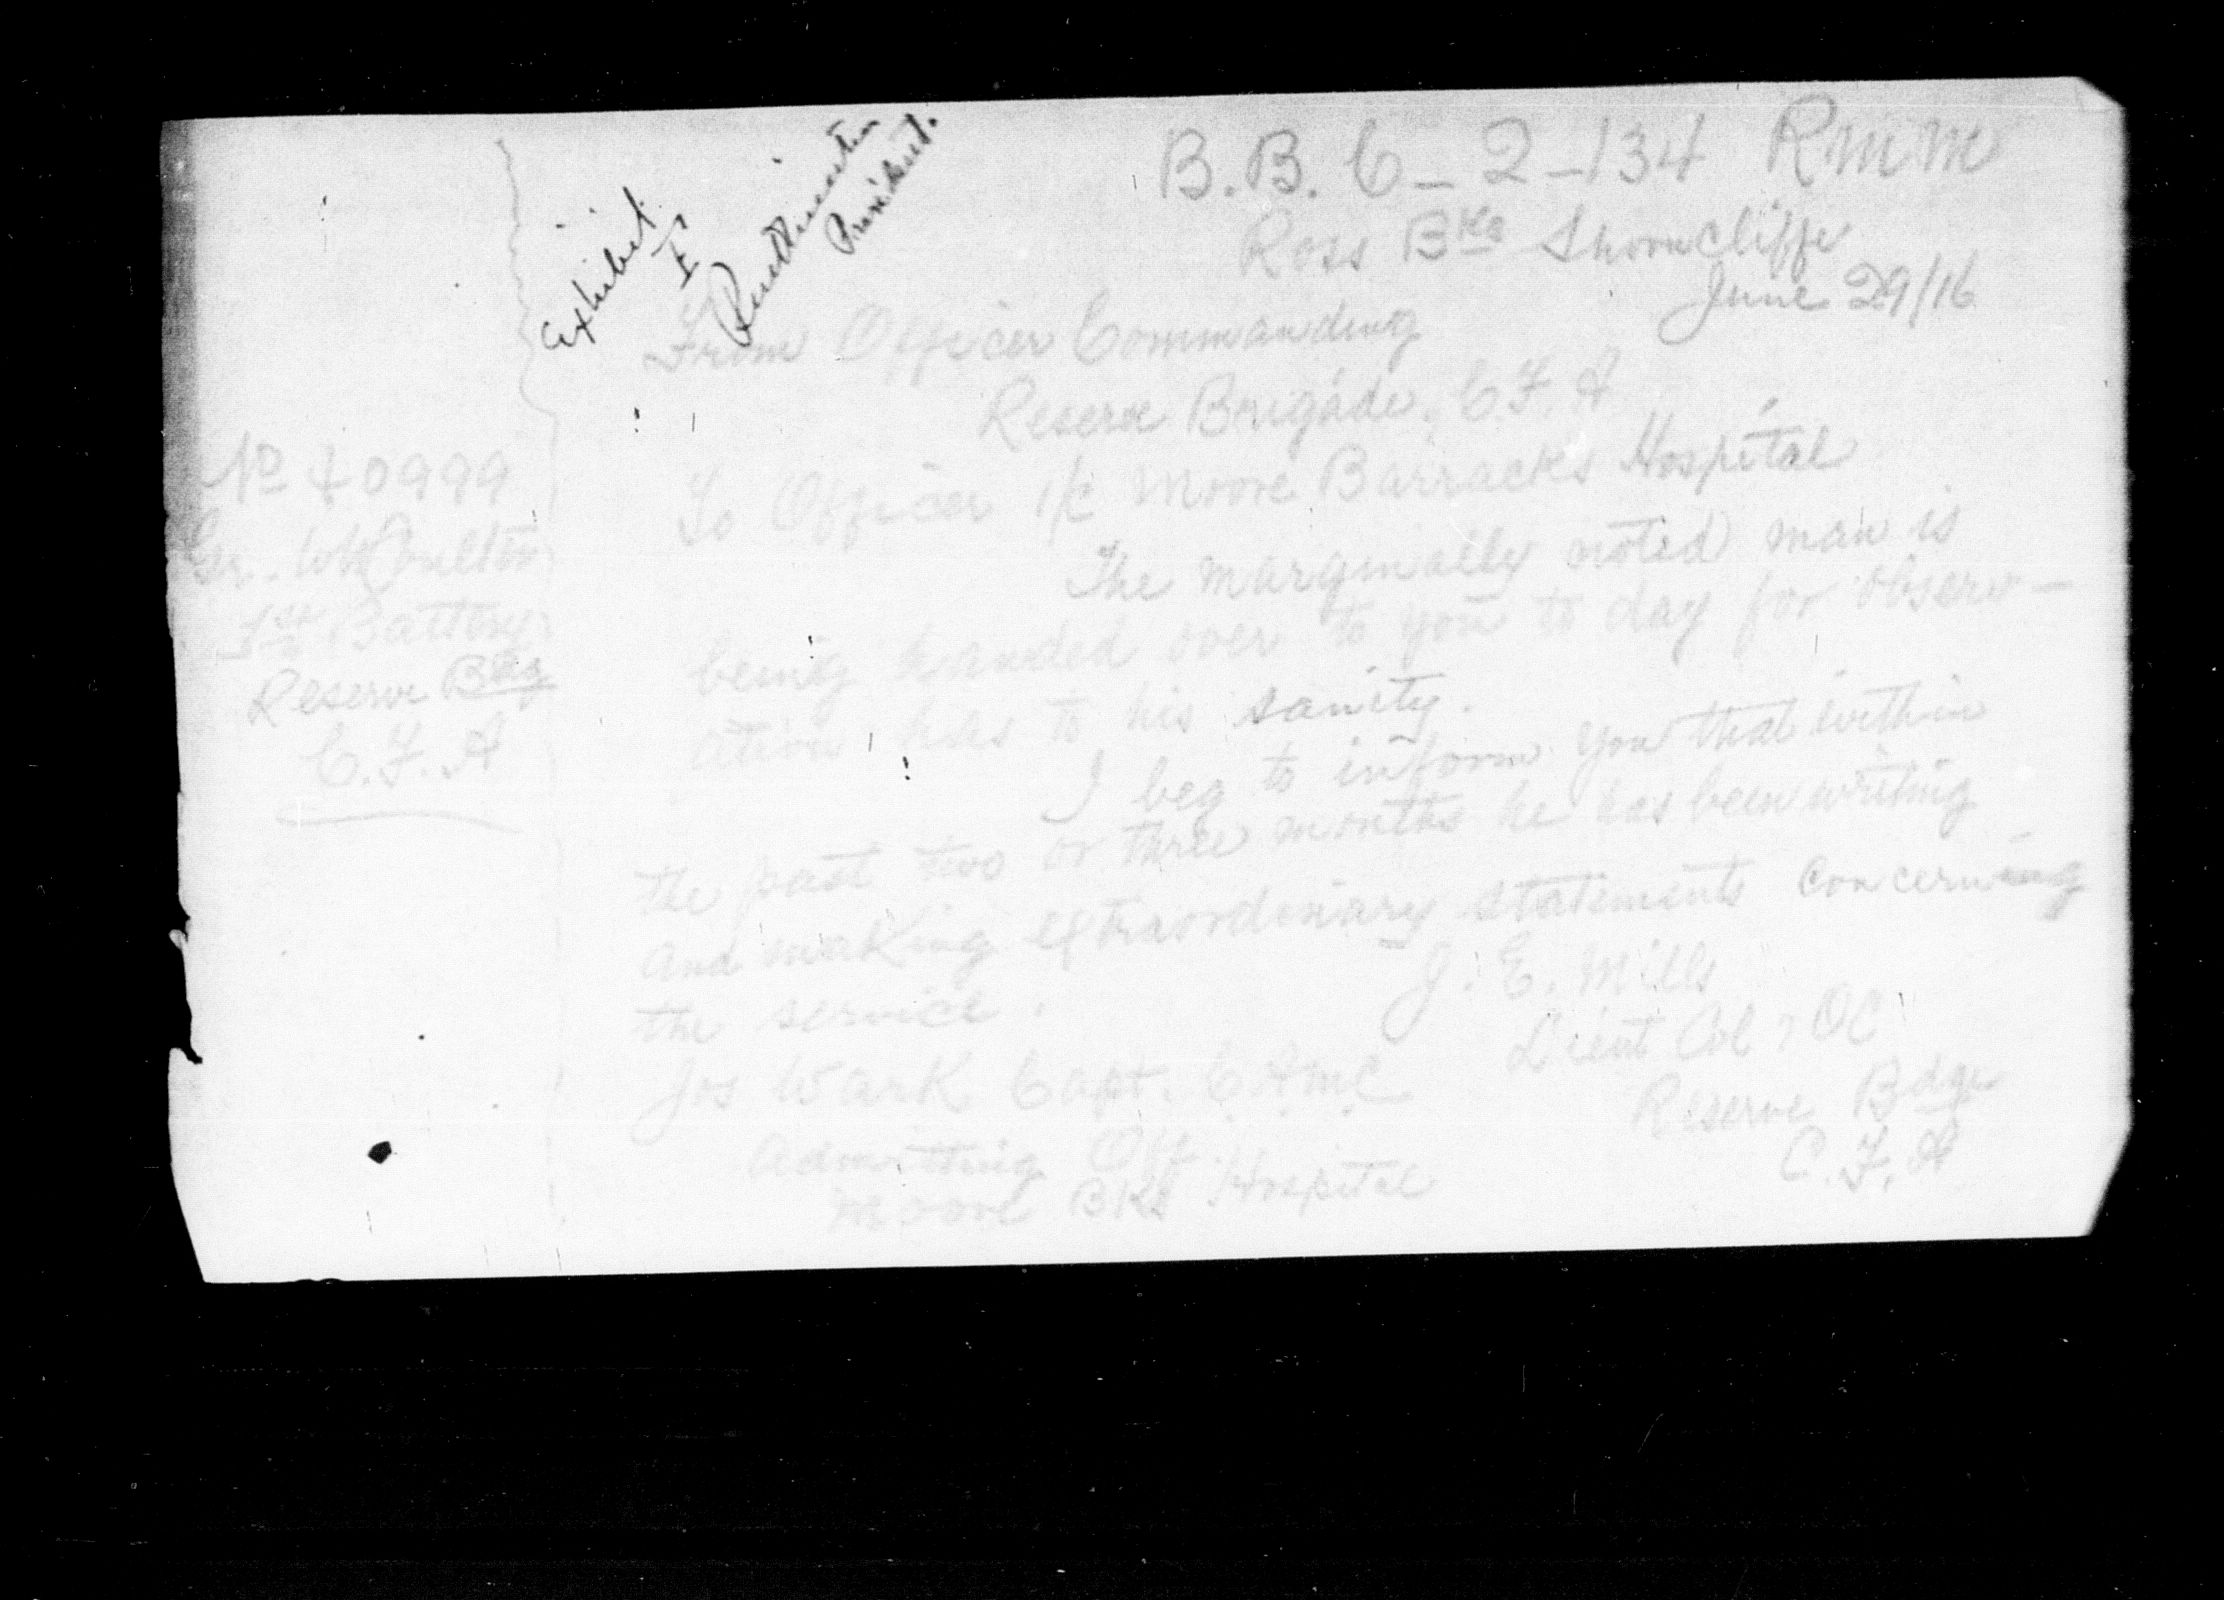 B.B. 6-2-134 RMM
Ross Bks Shorncliffe
June 29/16
Exhibit
I
President.
From Officer Commanding
Reserve Brigade, C.F.A
To Officer i/c Moore Barracks Hospital
No 40999
Gr. W Moulton
1st Battery
Reserve Bdg
C.F.A
The marginally noted man is
being handed over to you to day for observ-
ation has to his sanity.
I beg to inform you that within
the past two or three months he has been writing
and making extraordinary statements concerning
the service.
J. E. Mills
Lieut Col & OC
Reserve Bdge
C.F.A
Jos Wark Capt. C.A.M.C
Admitting Off.
Moore Bks Hospital